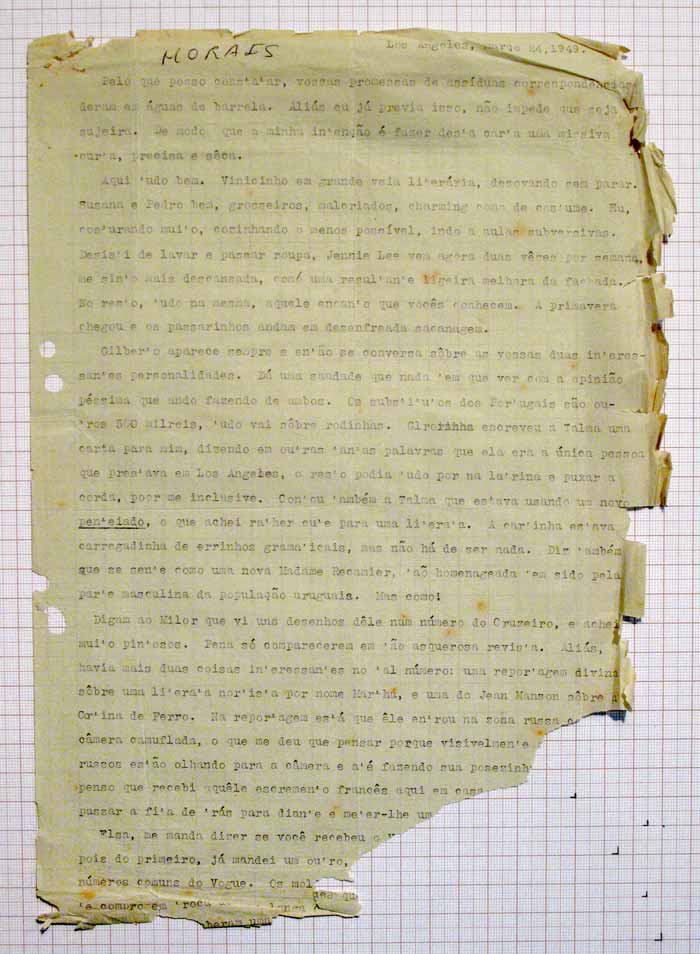 MORAIS
Los Angeles, março 24, 1949.
Pelo que posso cons'a'ar, vossas promessas de assíduas correspondencias
deram em águas de barrela. Aliás eu já previa isso, não impede que seja
sujeira. De modo que a minha in'enção é fazer des'a car'a uma missiva
cur'a, precisa e sêca.
Aqui 'udo bem. Vinicinho em grande veia li'erária, desovando sem parar.
Susana e Pedro bem, grosseiros, malcriados, charming como de cos'ume. Eu,
cos'urando mui'o, cozinhando o menos possível, indo a aulas subversivas.
Desis'i de lavar e passar roupa, Jennie Lee vem agora duas vêses por semana,
me sin'o mais descansada, com uma resul'an'e ligeira melhora da fachada.
No res'o, 'udo na mesma, aquele encan'o que vocês conhecem. A primavera
chegou e os passarinhos andam em desenfreada sacanagem.
Gilber'o aparece sempre e en'ão se conversa sôbre as vossas duas in'eres-
san'es personalidades. Dá uma saudade que nada 'em que ver com a opinião
péssima que ando fazendo de ambos. Os subs'i'u'os dos Por'ugais são ou-
'ros 500 milreis, 'udo vai sôbre rodinhas. escreveu a Talma uma
carta para mim, dizendo em ou'ras 'an'as palavras que ela era a única pessoa
que pres'ava em Los Angeles, o res'o podia 'udo por na la'rina e puxar a
corda, poor me inclusive. Con'ou 'ambém a Talma que es'ava usando um novo
pen'eiado, o que achei ra'her cu'e para uma li'era'a. A car'inha es'ava
carregadinha de errinhos grama'icais, mas não há de ser nada. Diz 'ambém
que se sen'e como uma nova Madame Recamier, 'aõ homenageada 'em sido pela
par'e masculina da população uruguaia. Mas como!
Digam ao Milor que vi uns desenhos dêle num número do Cruzeiro, e achei
mui'o pin'osos. Pena só comparecerem em 'ão asquerosa revis'a. Aliás,
havia mais duas coisas in'eressan'es no 'al número: uma repor'agem divina
sôbre uma li'era'a nor'is'a por nome Mar'há, e uma do Jean Manson sôbre a
Cor'ina de Ferro. Na repor'agem es'á que êle en'rou na zona russa c
câmera camuflada, o que me deu que pensar porque visivelmen'e
russos es'ão olhando para a câmera e a'é fazendo sua posezinh
penso que recebi aquêle excremen'o francês aqui em casa
passar a fi'a de 'rás para dian'e e me'er-lhe um
Elsa, me manda dizer se você recebeu o
pois do primeiro, já mandei um ou'ro,
números comuns do Vogue. Os mol
'e compro em 'roca